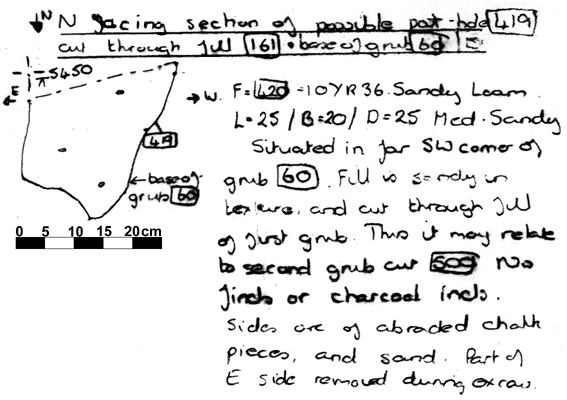 N N facing section of possible post-hole 419
cut through fill 161 • base of grub 60 E
5450
E
W.
F = 420 = 10YR 36. Sandy Loam.
L = 25 / B = 20 / D = 25 Med. Sandy
419
Situated in far SW corner of
grub 60. Fill is sandy in
base of
grub 60
texture, and cut through fill
of first grub. Thus it may relate
to second grub cut 509 No
finds or charcoal incls.
Sides are of abraded chalk
pieces, and sand. Part of
E side removed during excav.
0 5 10 15 20cm